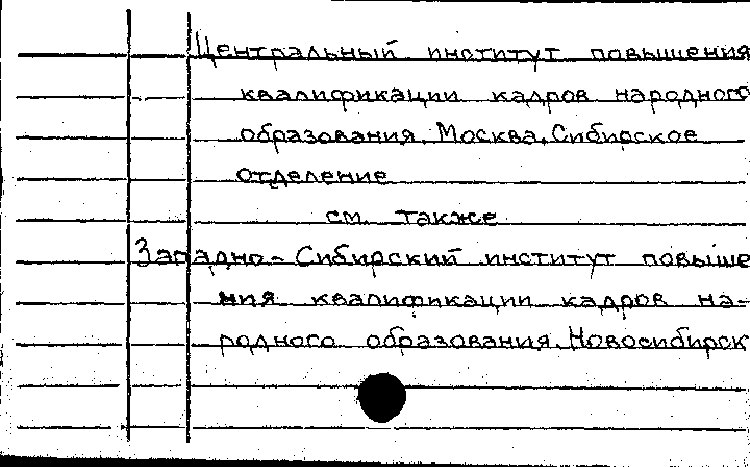 Центральный институт повышения
квалификации кадров народного
образования. Москва. Сибирское
отделение
см. также
Западно-Сибирский институт повыше
ния квалификации кадров на-
родного образования. Новосибирск